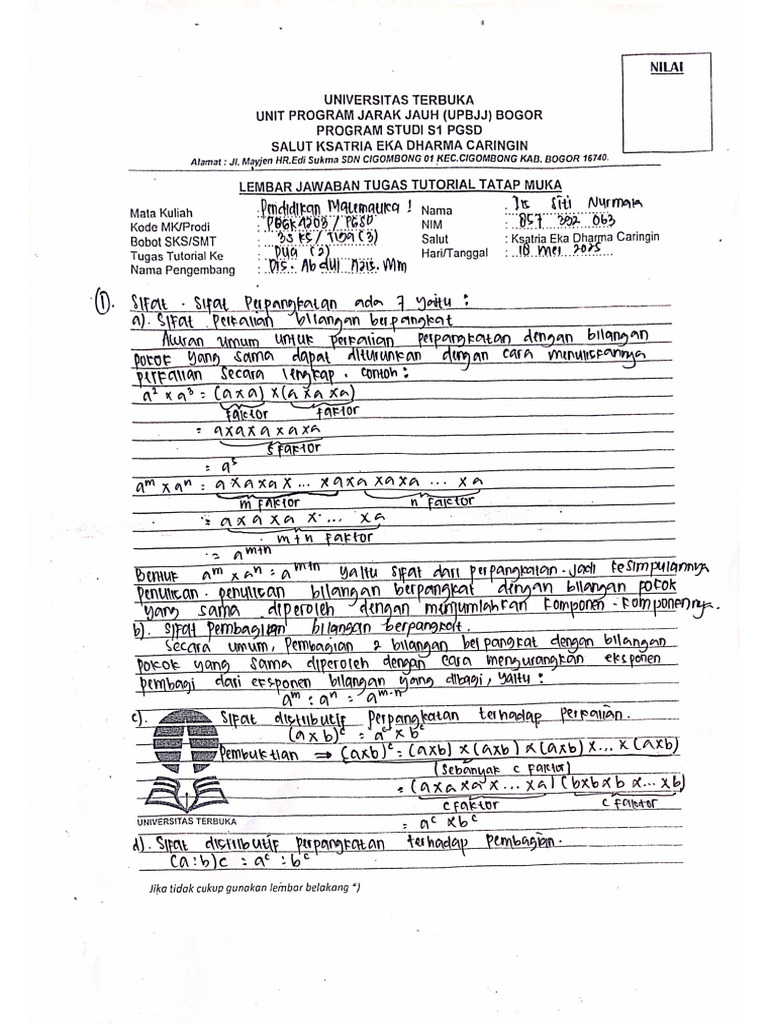 NILAI
UNIVERSITAS TERBUKA
UNIT PROGRAM JARAK JAUH (UPBJJ) BOGOR
PROGRAM STUDI S1 PGSD
SALUT KSATRIA EKA DHARMA CARINGIN
Alamat : Jl. Mayjen HR.Edi Sukma SDN CIGOMBONG 01 KEC.CIGOMBONG KAB. BOGOR 16740.
LEMBAR JAWABAN TUGAS TUTORIAL TATAP MUKA
Mata Kuliah : Pendidikan Matematika 1 Nama : Siti Nurmala
Kode MK/Prodi : PDGK4203 / PGSD NIM : 857 332 063
Bobot SKS/SMT : 3SKS / Tiga (3) Salut : Ksatria Eka Dharma Caringin
Tugas Tutorial Ke : Dua (2) Hari/Tanggal : 18 Mei 2025
Nama Pengembang : Drs. Abdul Azis. Mm
1. Sifat - Sifat Perpangkatan ada 7 yaitu :
a). Sifat Perkalian bilangan berpangkat
Aturan umum untuk perkalian perpangkatan dengan bilangan
pokok yang sama dapat diturunkan dengan cara menuliskannya
perkalian secara lengkap. contoh :
a² x a³ = (a x a) x (a x a x a)
faktor faktor
= a x a x a x a x a
5 faktor
= a⁵
aᵐ x aⁿ = a x a x a x ... x a x a x a x a ... x a
m faktor n faktor
= a x a x a x ... x a
m + n faktor
= aᵐ⁺ⁿ
Bentuk aᵐ x aⁿ = aᵐ⁺ⁿ yaitu sifat dari perpangkatan. jadi kesimpulannya
penulisan - penulisan bilangan berpangkat dengan bilangan pokok
yang sama diperoleh dengan menjumlahkan komponen - komponennya.
b). Sifat Pembagian bilangan berpangkat.
Secara umum, Pembagian 2 bilangan berpangkat dengan bilangan
pokok yang sama diperoleh dengan cara mengurangkan eksponen
pembagi dari eksponen bilangan yang dibagi, yaitu :
aᵐ : aⁿ = aᵐ⁻ⁿ
c). Sifat distributif Perpangkatan terhadap perkalian.
(a x b)ᶜ = aᶜ x bᶜ
Pembuktian ⇒ (axb)ᶜ = (axb) x (axb) x (axb) x ... x (axb)
(Sebanyak c faktor)
= (a x a x a x ... x a) (b x b x b x ... x b)
c faktor c faktor
= aᶜ x bᶜ
UNIVERSITAS TERBUKA
d). Sifat distributif perpangkatan terhadap Pembagian.
(a : b)c = aᶜ : bᶜ
Jika tidak cukup gunakan lembar belakang *)